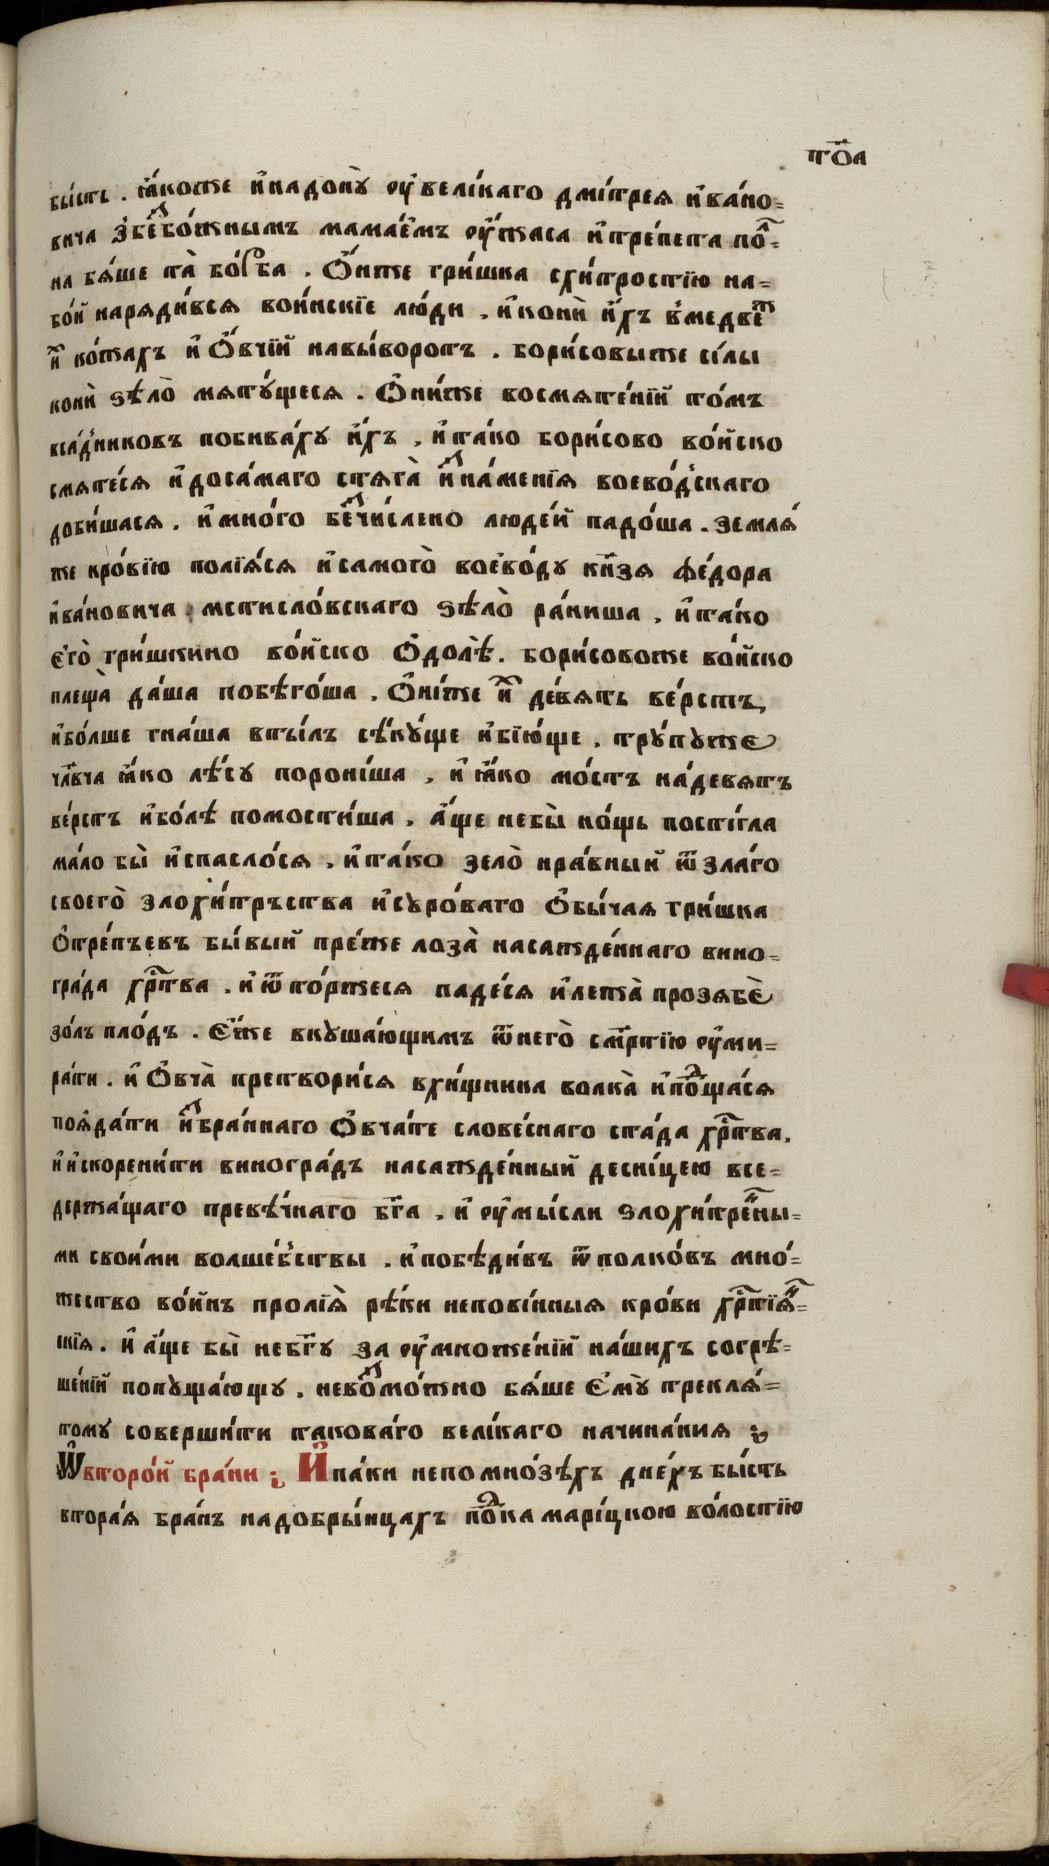 тѻ҃а
бы́сть . ꙗ҆́коже и҆ надонꙋ̀ ᲂу҆ вели́каго дми́трея и҆ва́но=
вича з̾ бе зⷠбо́жнымъ мамае́мъ ᲂу҆́жаса и҆ тре́пета по́л=
на бѧ́ше та̀ бо́рба . Ѻ҆́ниже гри́шка схи́тростїю на=
бо́й наряди́вся во́инскїе лю́ди , и҆ кони и҆́хъ в̾ медвеⷤ
и҆ ко́жахъ и҆ Ѻ҆вчїй навы́воротъ . бори́совыже си́лы
кони ѕѣлѡ̀ мяту́щеся . Ѻ҆ни́же восмяте́нїй то́мъ
вса́дниковъ побива́ху и҆́хъ , и҆ та́ко бори́сово во́йско
смяте́ся и҆ доса́маго стяга̀ и҆ зна́менїя воево́дскаго
доби́шася . и҆ мно́го безчи́слено люде́й падо́ша . земля́
же кро́вїю полїя́ся и҆ самого̀ воево́ду кн҃зя фе́дора
и҆ва́новича мстисло́вскаго ѕѣло̀ ра́ниша , и҆ та́ко
є҆го̀ гри́шкино во́йско Ѻ҆долѣ̀ . бори́совоже во́йско
плеща̀ да́ша побѣго́ша . Ѻ҆ни́же и҆ де́вять ве́рстъ,
и҆ бо́лше гна́ша вты́лъ сѣку́ще и҆ бїю́ще , тру́пуже
чл҃вча ꙗ҆́ко лѣ́су порони́ша , и҆ ꙗ҆́ко мо́стъ на́девятъ
ве́рстъ и҆ бо́лѣ помости́ша . а҆́ще небы̀ но́щь пости́гла
ма́ло бы̀ и҆ спасло́ся , и҆ та́ко зело̀ нра́вный ѿ зла́го
своего̀ злохи́трьства и҆ су́роваго Ѻ҆бы́чая гри́шка
Ѻ҆тре́пьевъ бы́вый пре́же лоза̀ насажде́ннаго вино=
гра́да хрⷭ҇тва . и҆ ѿто́ржеся паде́ся и҆ лежа̀ прозябѐ
зо́лъ пло́дъ . Є҆́же вкуша́ющимъ ѿнего̀ см҃ртїю ᲂу҆ми=
ра́ти . и҆ Ѻ҆вча̀ претвори́ся вхи́щника волка̀ и҆ поⷣща́ся
поѧда́ти и҆збра́ннаго Ѻ҆вча́те слове́снаго ста́да хрⷭ҇тва .
и҆ и҆скорени́ти виногра́дъ насажде́нный десни́цею все=
держа́щаго превѣ́чнаго бг҃а , и҆ ᲂу҆мы́сли ѕлохи́тренны=
ми свои́ми волше́бствы . и҆ побѣди́въ ѿ полко́въ мно́=
жество во́инъ пролїѧ̀ рѣ́ки непови́нныя кро́ви хрⷭ҇тїя́н=
кїя . и҆ а҆́ще бы̀ небг҃у за ᲂу҆мноте́нїй на́шихъ согрѣ=
ше́нїй попуща́ющу . невозмо́жно бя́ше є҆му̀ трекля́=
тому соверши́ти такова́го вели́каго начина́ния ;
Ѡ҆ второ́й бра́ни ; И҆ па́ки непомно́зѣхъ дне́хъ бы́сть
втора́я бра́нь надобры́нцахъ поⷣка мари́цкою во́лостїю